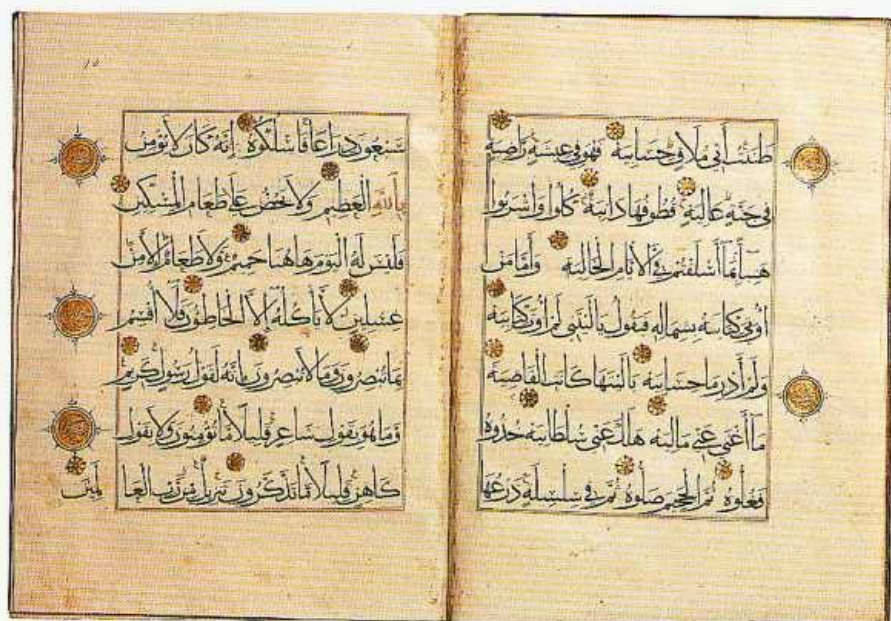 ظننت أني ملاق حسابيه فهو في عيشة راضية
في جنة عالية قطوفها دانية كلوا واشربوا
هنيئا بما أسلفتم في الأيام الخالية وأما من
أوتي كتابه بشماله فيقول يا ليتني لم أوت كتابيه
ولم أدر ما حسابيه يا ليتها كانت القاضية
ما أغنى عني ماليه هلك عني سلطانيه خذوه
فغلوه ثم الجحيم صلوه ثم في سلسلة ذرعها
سبعون ذراعا فاسلكوه إنه كان لا يؤمن
بالله العظيم ولا يحض على طعام المسكين
فليس له اليوم هاهنا حميم ولا طعام إلا من
غسلين لا يأكله إلا الخاطئون فلا أقسم
بما تبصرون وما لا تبصرون إنه لقول رسول كريم
وما هو بقول شاعر قليلا ما تؤمنون ولا بقول
كاهن قليلا ما تذكرون تنزيل من رب العا لمين